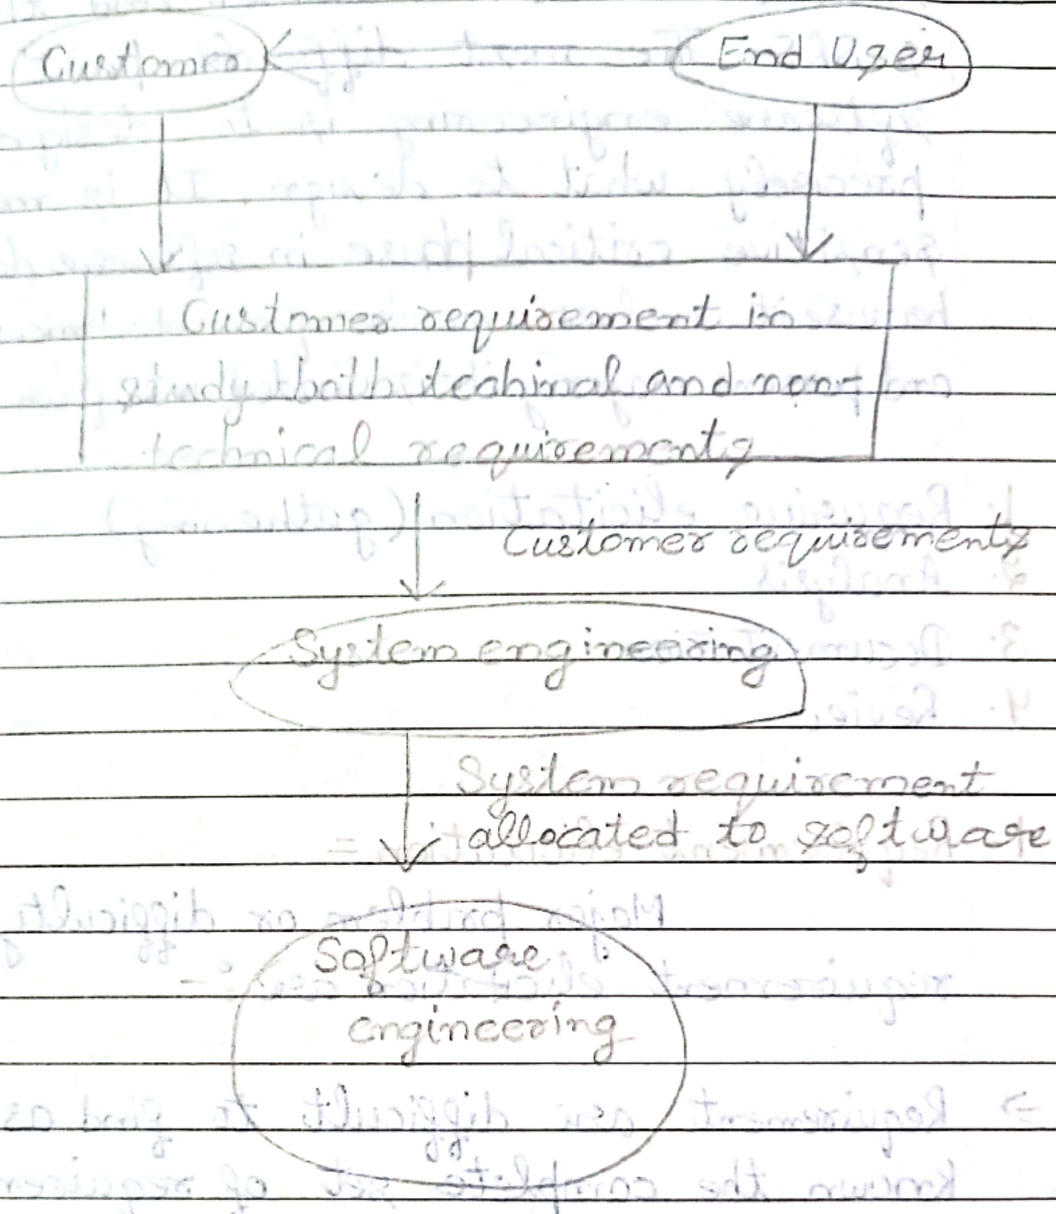 Customer End User
Customer requirement in
study both teahinal and non-
technical requirements
Customer requirements
System engineering
System requirement
allocated to software
Software
engineering